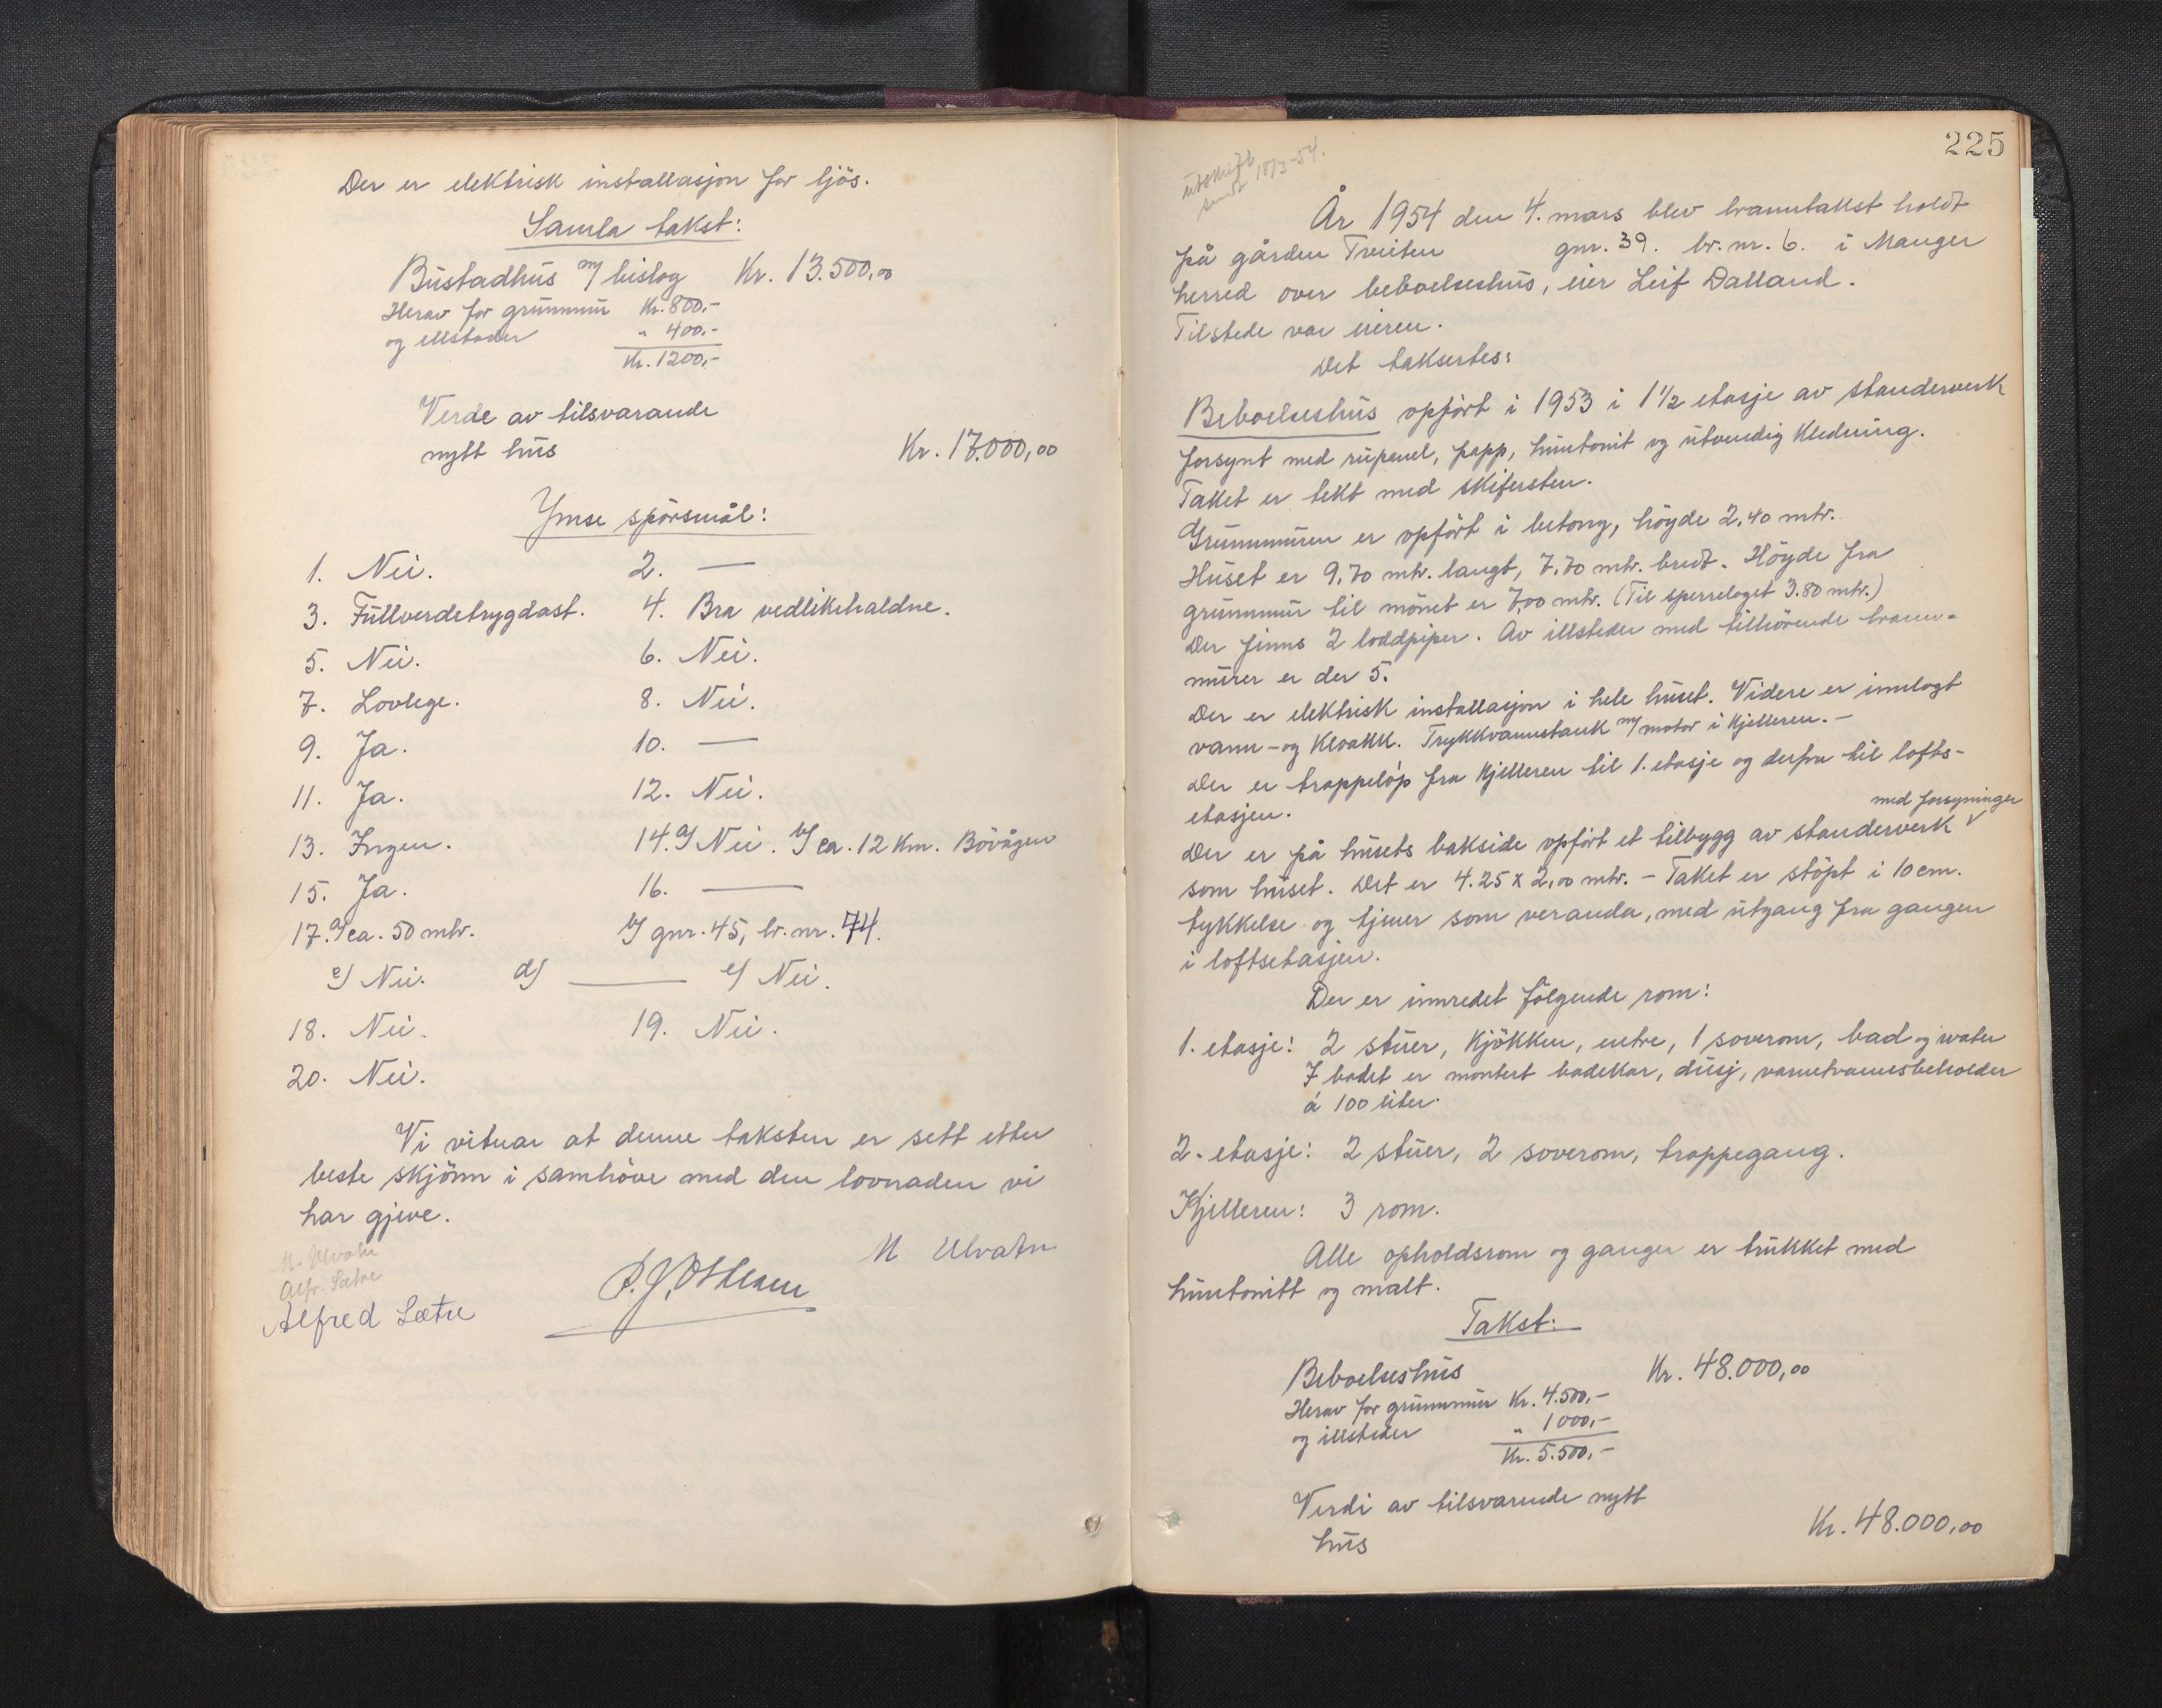 Der er elektrisk installasjon for ljós.
Samla takst:
Bústadhús m/ bislag Kr. 13.500,00
Herav for grúnnmúr Kr. 800,-
og ellstader " 400,-
Kr. 1200,-
Verde av tilsvarande
nytt hús Kr. 17.000,00
Ymse spörsmål:
1. Nei. 2. —
3. Fúllverdetrygdast. 4. Bra vedlikehaldne.
5. Nei. 6. Nei.
7. Lovlege. 8. Nei.
9. Ja. 10. —
11. Ja. 12. Nei.
13. Ingen. 14. a/ Nei. b/ ca. 12 Km. Bövågen
15. Ja. 16. —
17. a/ ca. 50 mtr. b/ gnr. 45, br. nr. 74.
c/ Nei. d/ — e/ Nei.
18. Nei. 19. Nei.
20. Nei.
Vi vitnar at denne taksten er sett etter
beste skjönn i samhöve med den lovnaden vi
har gjeve.
M. Ulvatn
Alfr. Sætre
M Ulvatn
Alfred Sætre
225
útskrift
sendt 18/3-54.
År 1954 den 4. mars blev branntakst holdt
på gården Treiten gnr. 39. br. nr. 6. i Manger
herred over beboelseshús, eier Leif Dalland.
Tilstede var eieren.
Det taksertes:
Beboelseshús opfört i 1953 i 1 1/2 etasje av standerverk
forsynt med rúpanel, papp, húntonit og útvendig Kledning.
Taket er tekt med skifersten.
Grúnnmúren er opfört i betong, höyde 2.40 mtr.
Húset er 9.70 mtr. langt, 7.70 mtr. bredt. Höyde fra
grúnnmúr til mönet er 7,00 mtr. (Til sperrelaget 3.80 mtr.)
Der finns 2 loddpiper. Av illsteder med tilhörende brann-
múrer er der 5.
Der er elektrisk installasjon i hele húset. Videre er innlagt
vann- og Kloakk. Trykkvannstank m/ motor i Kjelleren. -
Der er trappelöp fra Kjelleren til 1. etasje og derfra til lofts-
etasjen.
med forsyninger
Der er på húsets bakside opfört et tilbygg av standerverk √
som húset. Det er 4.25 x 2,00 mtr. - Taket er stöpt i 10 cm.
tykkelse og tjener som veranda, med útgang fra gangen
i loftsetasjen.
Der er innredet fölgende rom:
1. etasje: 2 stúer, Kjökken, entre, 1 soverom, bad og water
I badet er montert badekar, dúsj, varmtvannsbeholder
á 100 liter.
2. etasje: 2 stúer, 2 soverom, trappegang.
Kjelleren: 3 rom.
Alle opholdsrom og ganger er trúkket med
húntonitt og malt.
Takst:
Beboelseshús Kr. 48.000,00
Herav for grúnnmúr Kr. 4.500,-
og illsteder " 1000,-
Kr. 5.500,-
Verdi av tilsvarende nytt
hús Kr. 48.000,00